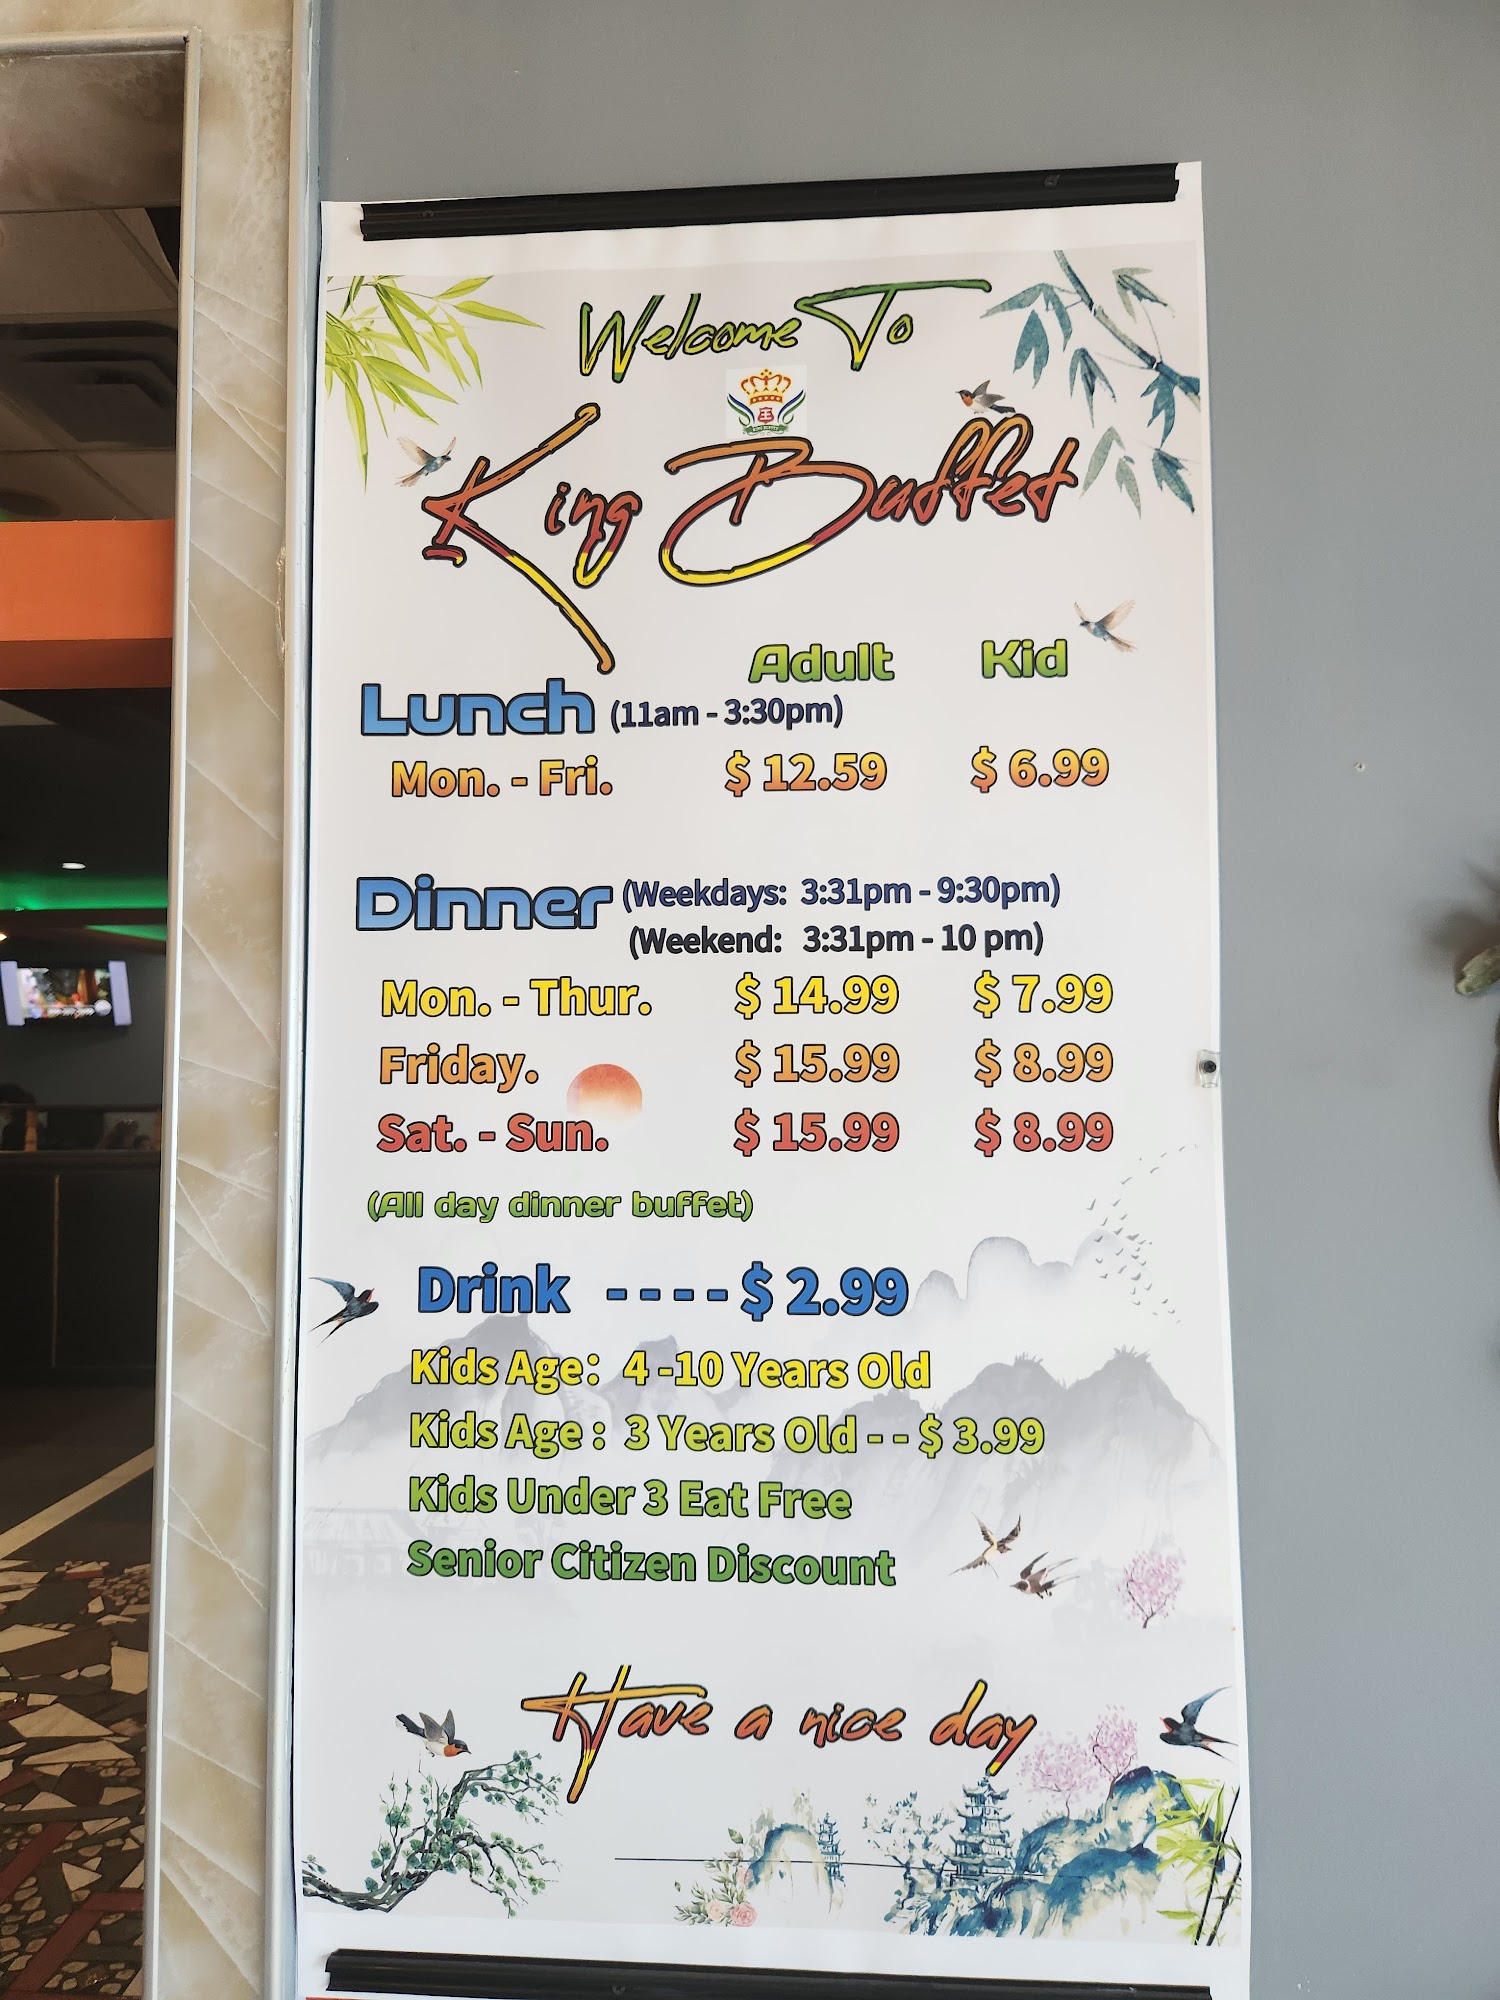 Welcome To
KING BUFFET
King Buffet
Adult Kid
Lunch (11am - 3:30pm)
Mon. - Fri. $ 12.59 $ 6.99
Dinner (Weekdays: 3:31pm - 9:30pm)
(Weekend: 3:31pm - 10 pm)
Mon. - Thur. $ 14.99 $ 7.99
Friday. $ 15.99 $ 8.99
Sat. - Sun. $ 15.99 $ 8.99
(All day dinner buffet)
Drink - - - - $ 2.99
Kids Age: 4 -10 Years Old
Kids Age : 3 Years Old - - $ 3.99
Kids Under 3 Eat Free
Senior Citizen Discount
Have a nice day